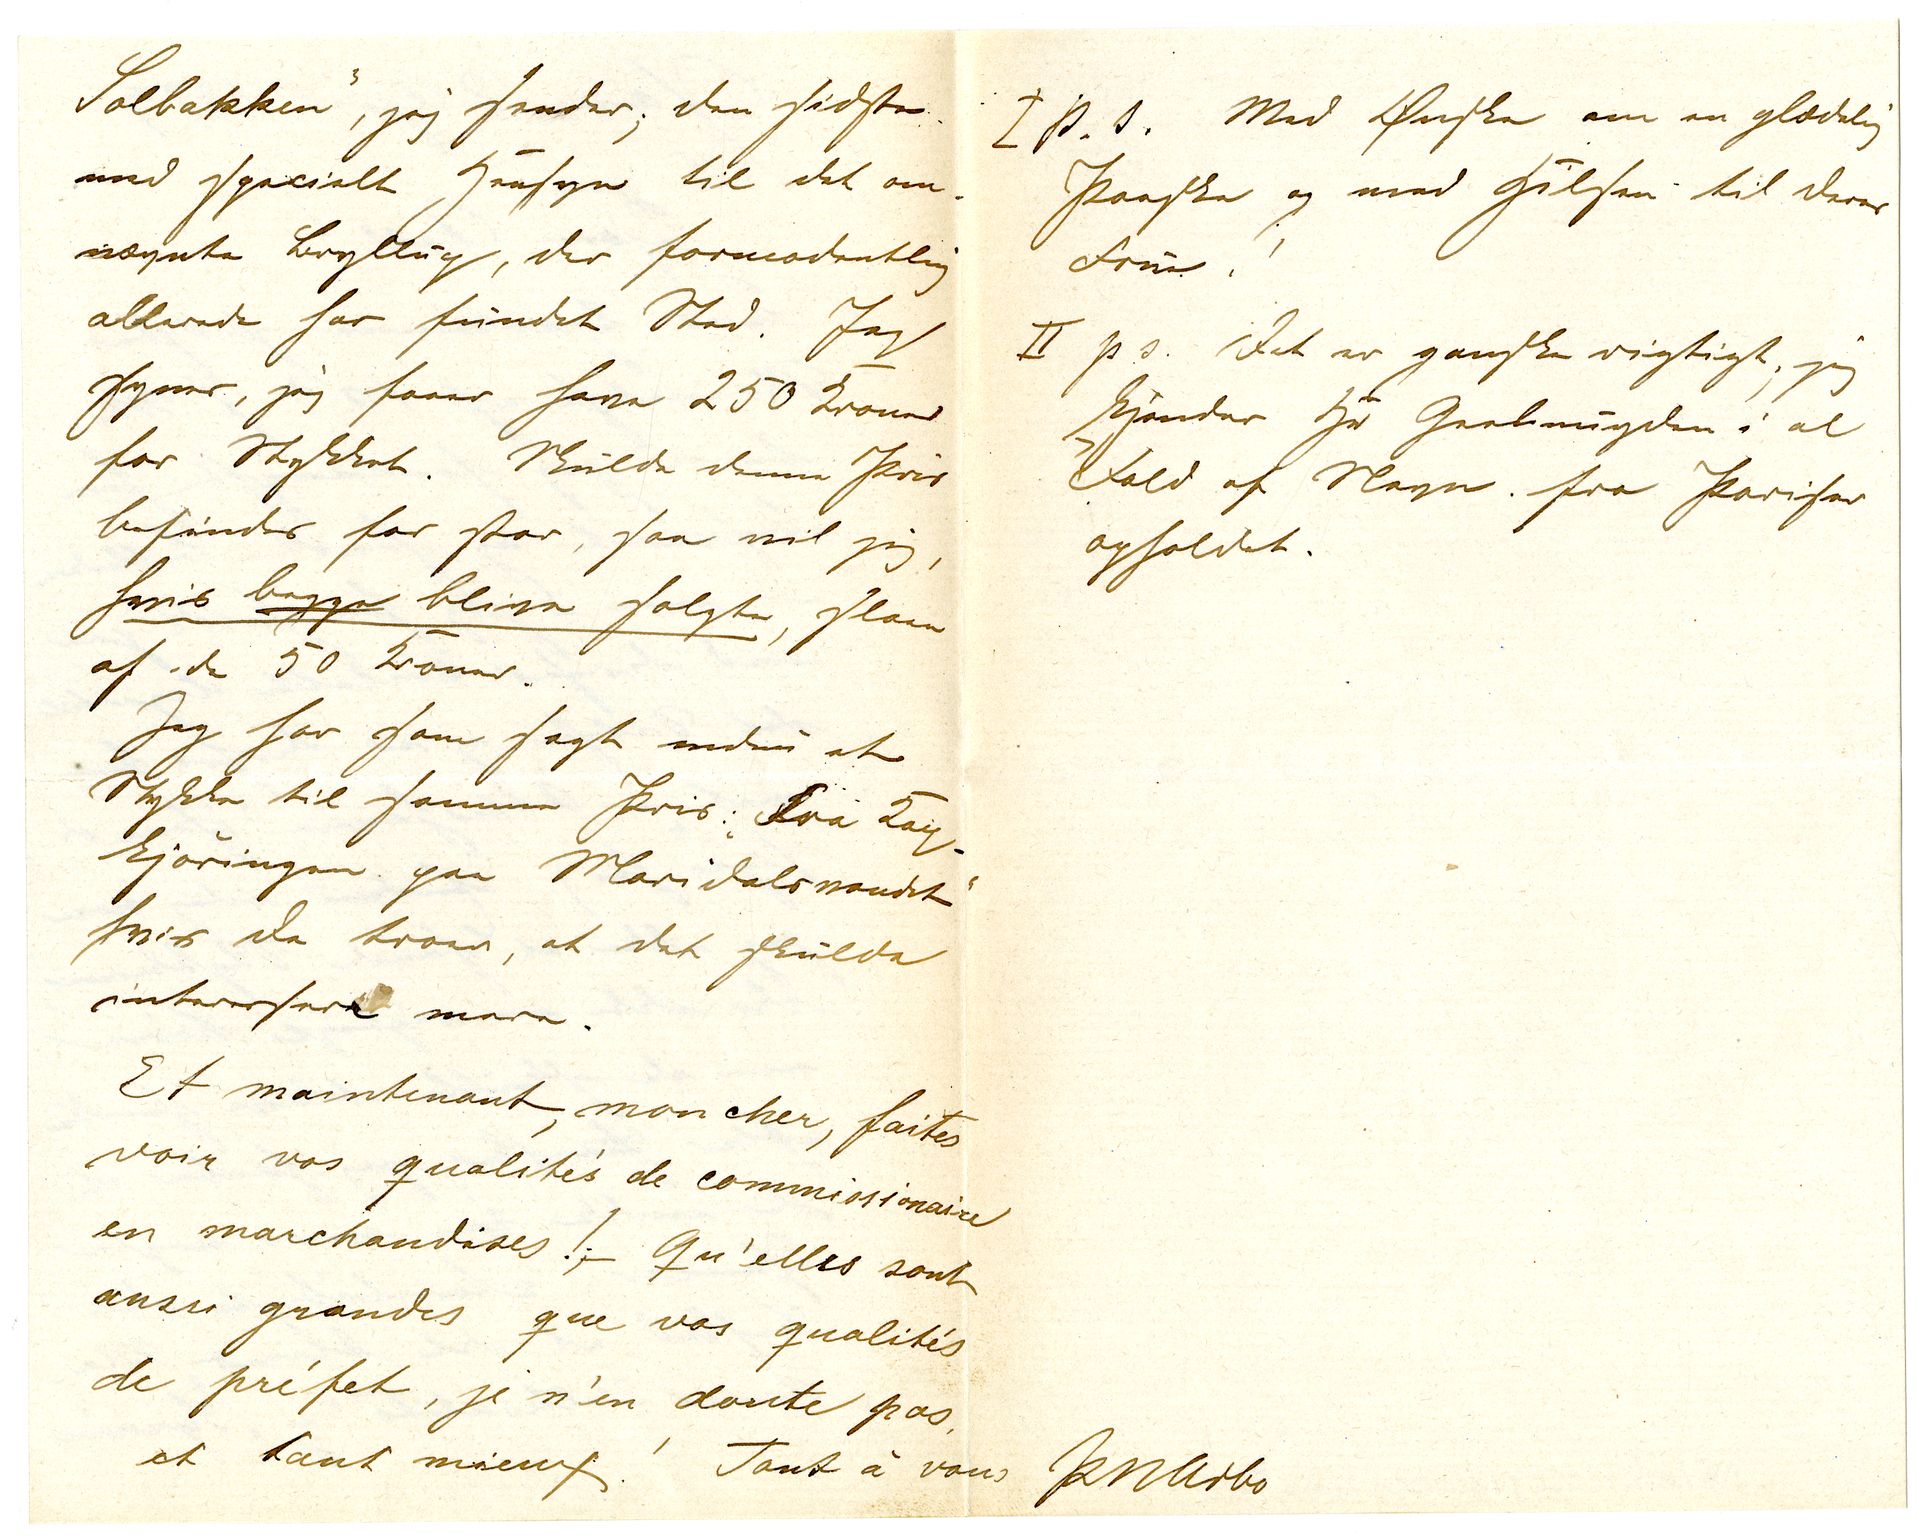 Solbakken", jeg sender; den sidste
med specielt Hensyn til det om-
nævnte Bryllup, der formodentlig
allerede har fundet Sted. Jeg
synes, jeg faaer have 250 Kroner
for Stykket. Skulde denne Pris
befindes for stor, saa vil jeg,
hvis begge blive solgte, slaae
af de 50 Kroner.
Jeg har som sagt endnu et
Stykke til samme Pris: „Fra Kap-
kjöringen paa Maridalsvandet"
hvis De troer, at det skulde
interessere mere.
Et maintenant, mon cher, faites
voir vos qualités de commissionaire
en marchandises!; – Qu'elles sont
aussi grandes que vos qualités
de préfet, je n'en doute pas,
et tant mieux! Tout à vous
PNArbo
I p. s. Med Ønske om en glædelig
Paaske og med Hilsen til Deres
Frue!
II p s. Det er ganske rigtigt, jeg
kjender Hr Geelmuyden i al
Fald af Navn fra Pariser
opholdet.